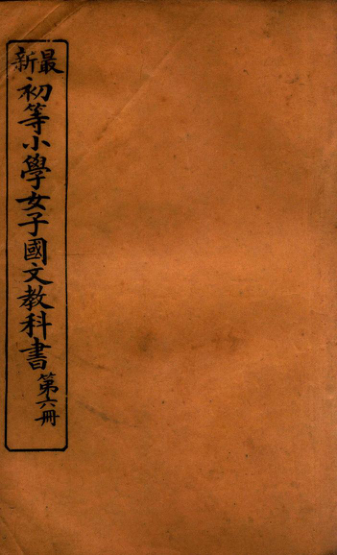 最新初等小學女子國文教科書
第六冊